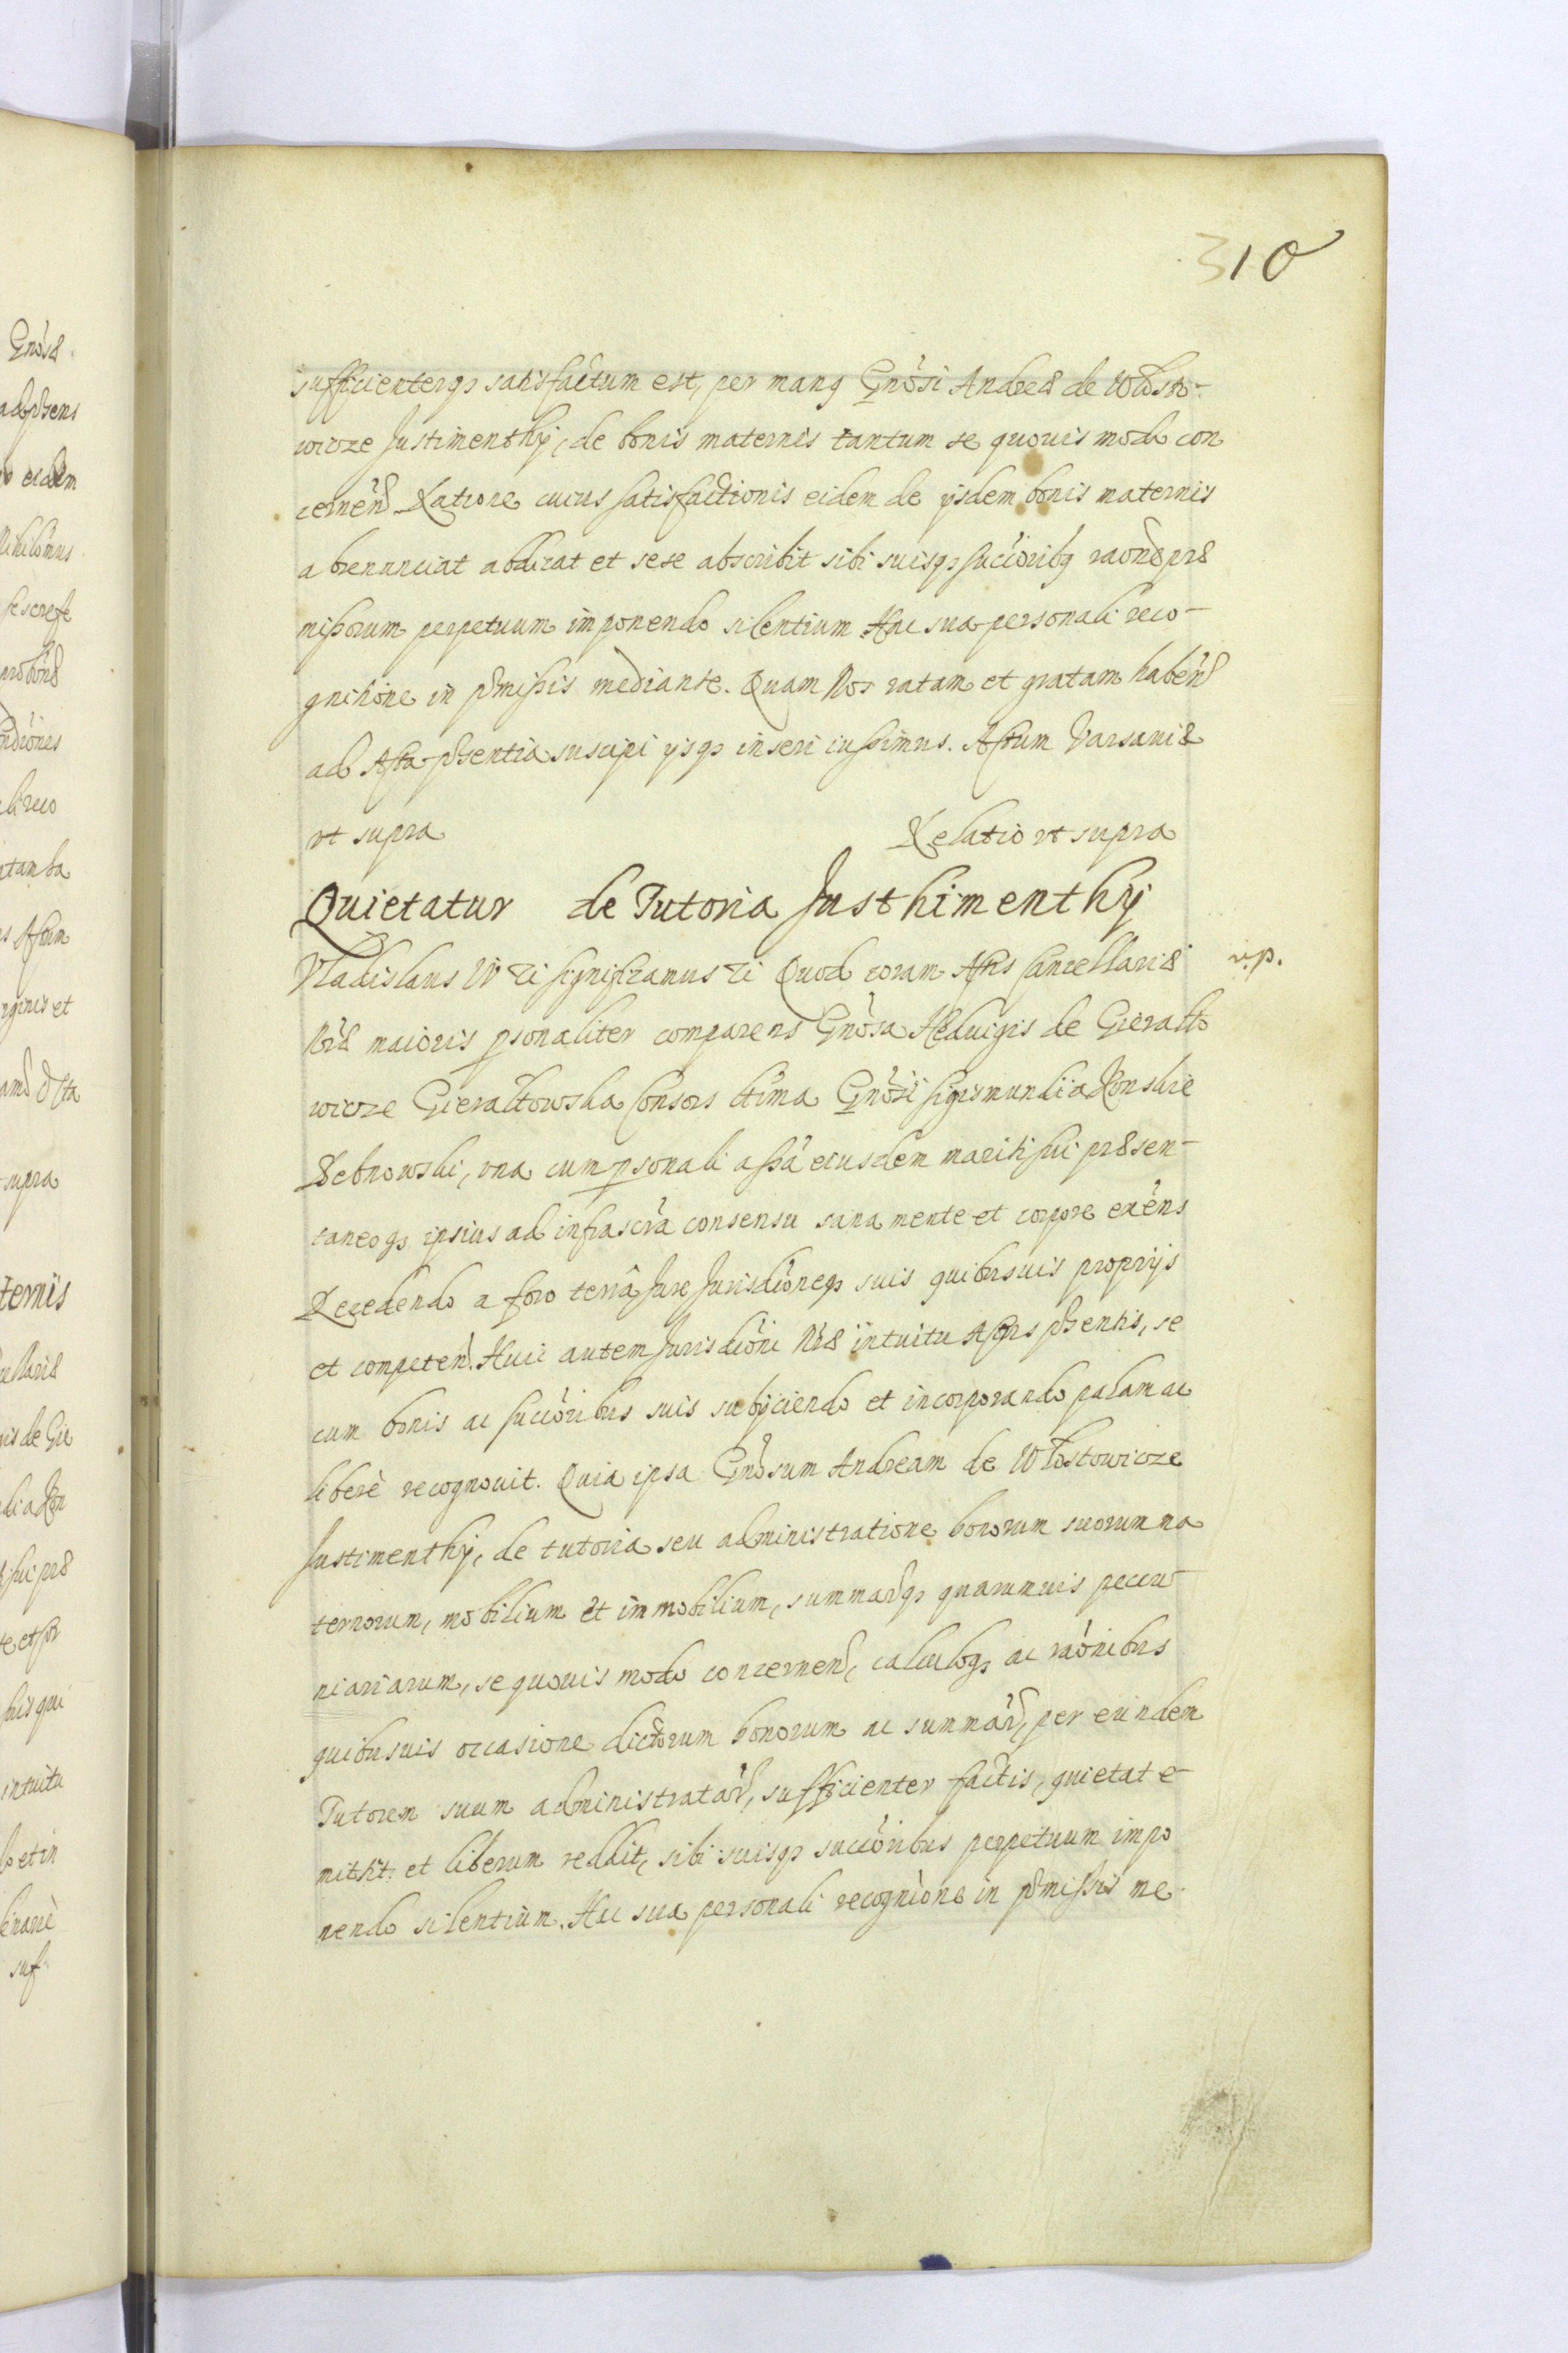 310
sufficienterqȝ satisfactum est, per manq Gnosi Andreæ de Włosto-
wicze Justimenthy, de bonis maternis tantum se quouis modo con
cernen Ratione cuius satisfactionis eidem de ijsdem bonis maternis
abrenunciat abdicat et sese abscribit sibi suisqȝ succoribq raone præ
missorum perpetuum imponendo silentium Hac sua personali reco-
gnitione in pmissis mediante. Quam Nos ratam et gratam haben
ad Acta psentia suscipi ijsqȝ inseri iussimus. Actum Varsauiæ
vt supra Relatio vt supra
Quietatur de Tutoria Justhimenthy
Vladislaus IV etc significamus etc Quod coram Actis Cancellariæ v.p.
Nræ maioris psonaliter comparens Gnosa Heduigis de Gierałto
wicze Gierałtowska Consors ltima Gnosi Sigismundi a Konskie
Debnowski, vna cum psonali assa eiusdem mariti sui præsen-
taneoqȝ ipsius ad infrascra consensu sana mente et corpore exens
Recedendo a foro terra Jure Jurisdioneqȝ suis quibusuis proprijs
et competen. Huic autem Jurisdioni Nræ intuitu Actus psentis, se
cum bonis ac succoribus suis subijciendo et incorporando palam ac
liberè recognouit. Quia ipsa Gnosum Andream de Włostowicze
Justimenthy, de tutoria seu administratione bonorum suorum ma
ternorum, mobilium et immobilium, summarqȝ quarumuis pecu-
niariarum, se quouis modo concernen, calculoqȝ ac raonibus
quibusuis occasione dictorum bonorum ac summar, per eundem
Tutorem suum administratar, sufficienter factis, quietat e-
mittit et liberum reddit, sibi suisqȝ succoribus perpetuum impo
nendo silentium. Hac sua personali recognione in pmissis me-